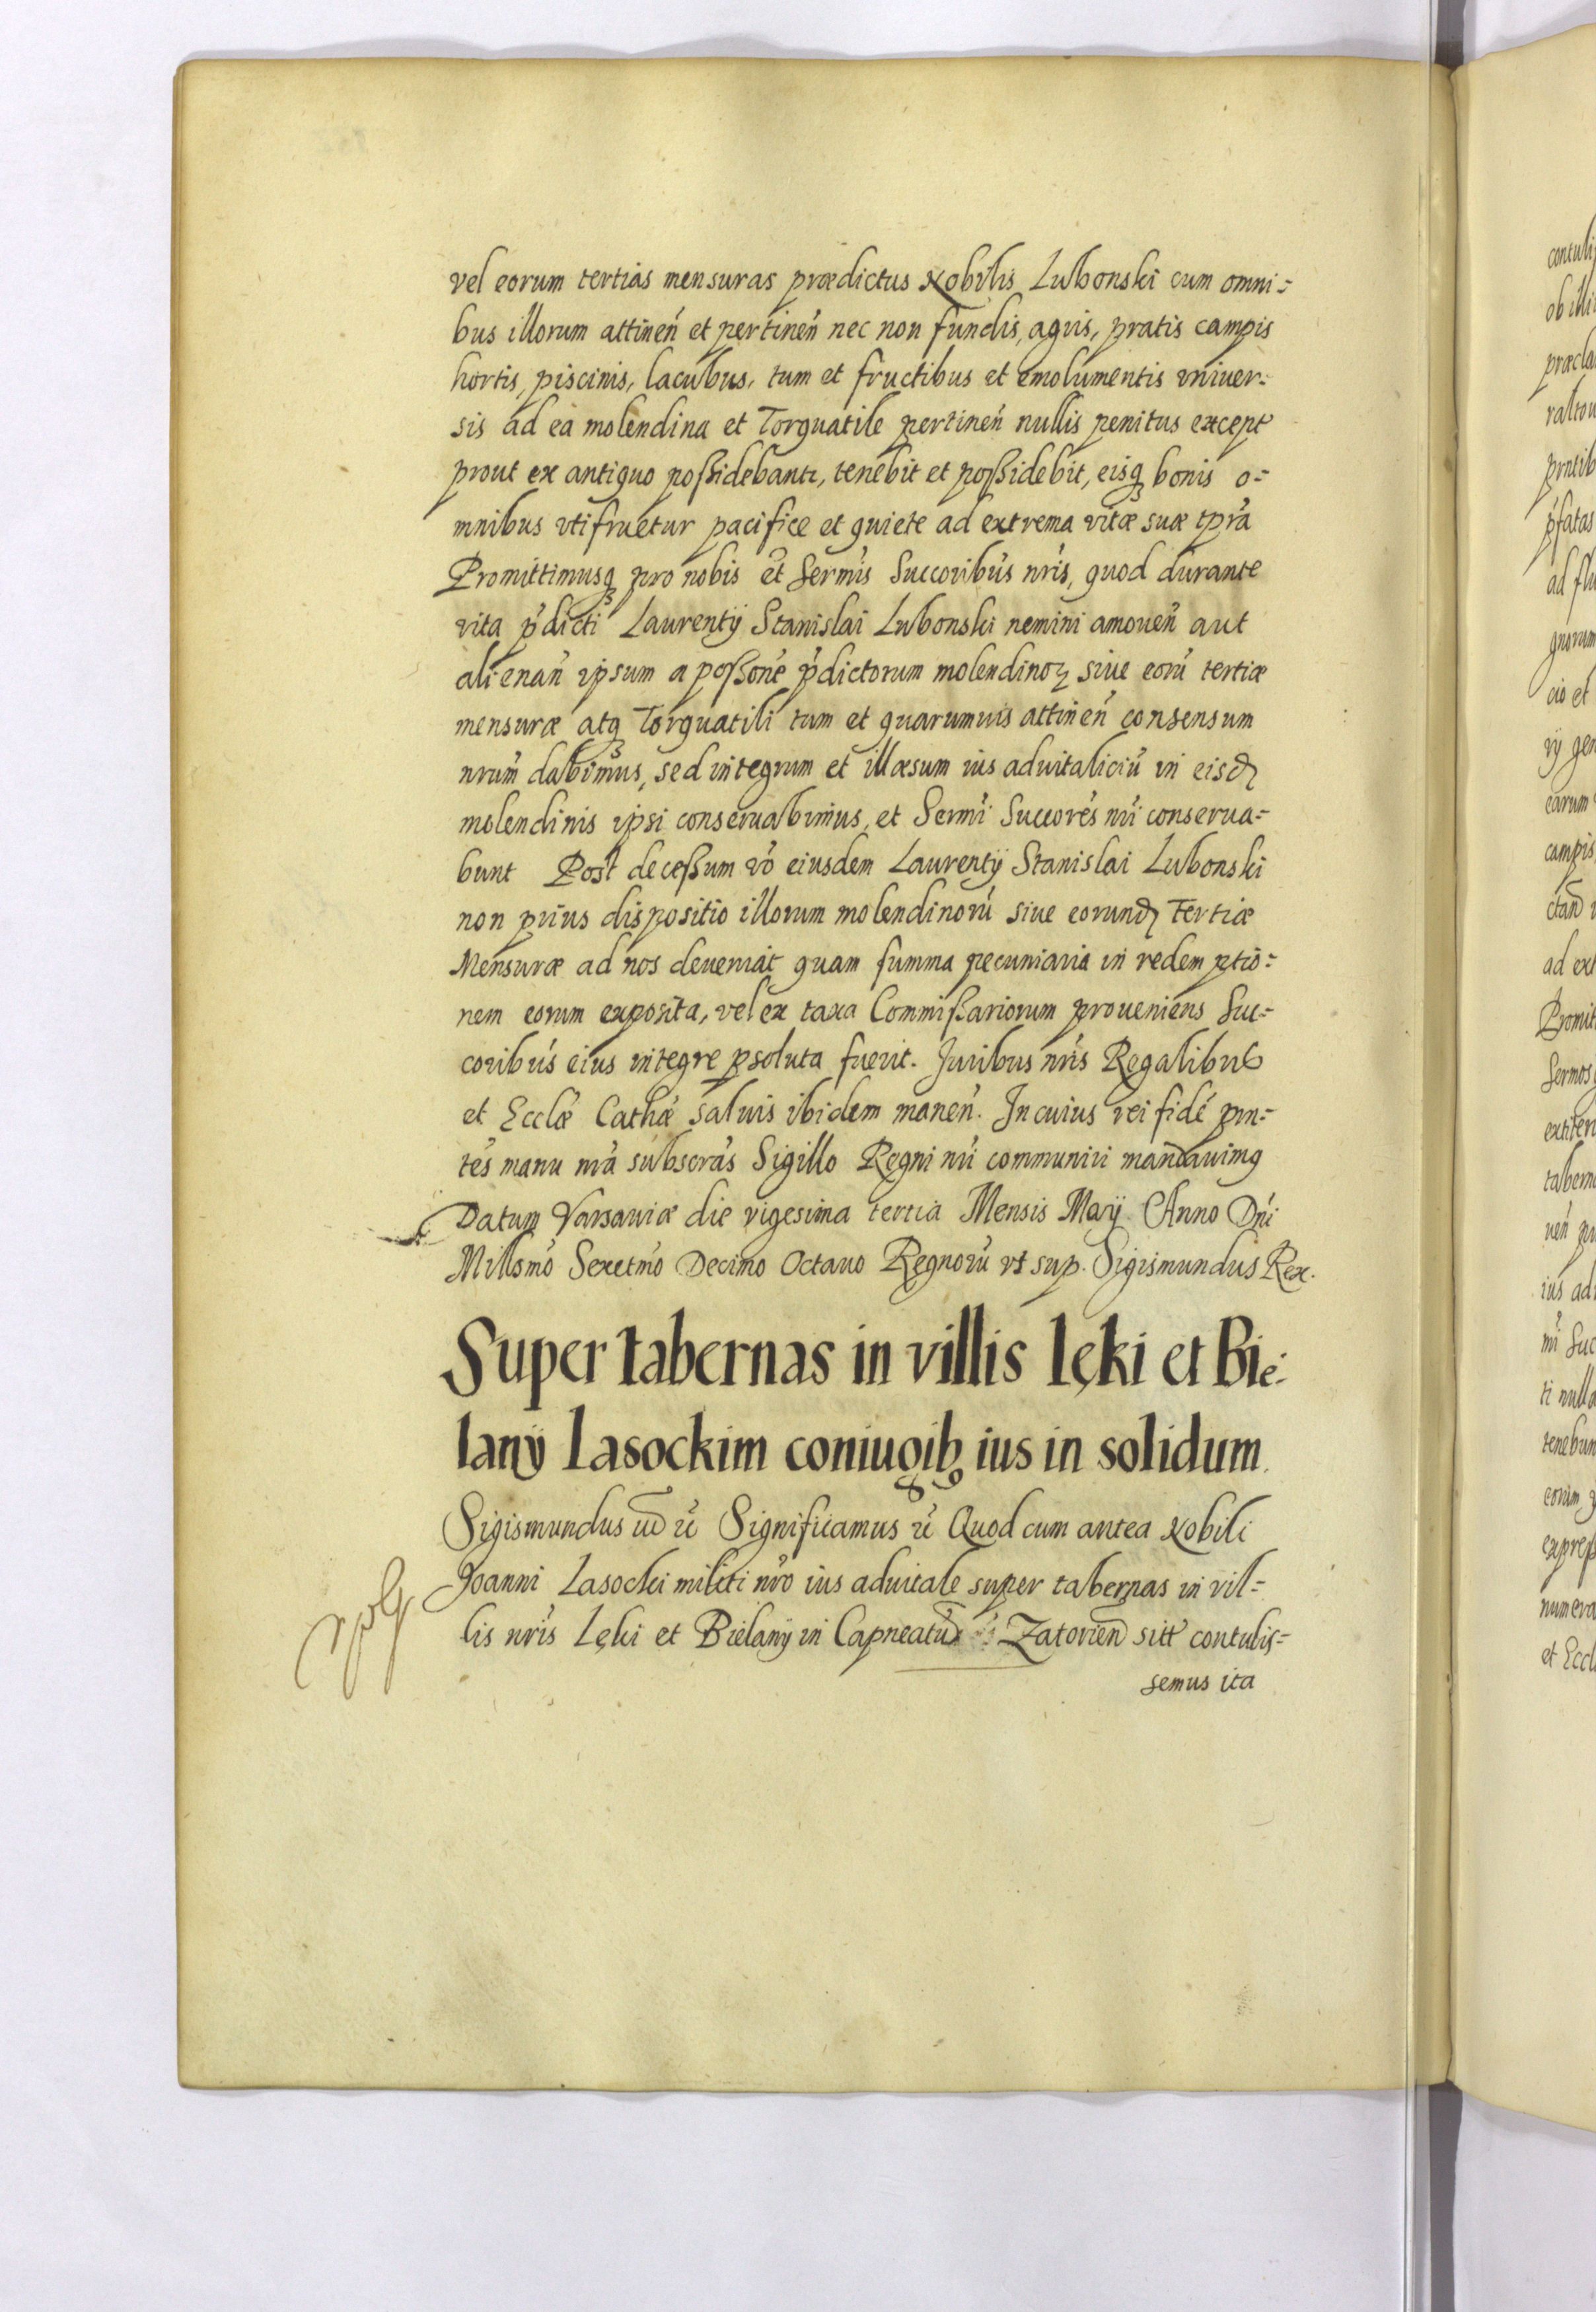 vel eorum tertias mensuras prædictus Nobilis Lubonski cum omni=
bus illorum attineń et pertineń nec non fundis, aquis, pratis campis
hortis, piscinis, lacubus, tum et fructibus et emolumentis vniuer=
sis ad ea molendina et Torquatile pertineń nullis penitus except
prout ex antiquo poßidebantr, tenebit et poßidebit, eisqꝫ bonis o=
mnibus vtifruetur pacifice et quiete ad extrema vitæ suæ tpra
Promittimusqꝫ pro nobis et Sermis Succoribus nris, quod durante
vita pdicti Laurentÿ Stanislai Lubonski nemini amoueń aut
alienań ipsum a poßone pdictorum molendinoꝝ siue eorú tertiæ
mensuræ atqꝫ Torquatili tum et quarumuis attineń consensum
nrum dabimus, sed integrum et illæsum ius aduitaliciú in eisd
molendinis ipsi conseruabimus, et Sermi Succores nri conserua=
bunt Post deceßum vo eiusdem Laurentÿ Stanislai Lubonski
non prius dispositio illorum molendinorú siue eorund Tertiæ
Mensuræ ad nos deueniat quam summa pecuniaria in redemptio=
nem eorum exposita, vel ex taxa Commißariorum proueniens Suc=
coribus eius integre ꝑsoluta fuerit. Juribus nris Regalibus
et Ecclæ Cathæ saluis ibidem maneń. In cuius rei fidé prn=
tes manu nra subscras Sigillo Regni nri communiri mandauimꝯ
Datum Varsauiæ die vigesima tertia Mensis Maÿ Anno Dni
Millsmo Sexctmo Decimo Octauo Regnorú vt sup. Sigismundus Rex.
Super tabernas in villis Lęki et Bie=
lanÿ Lasockim coniugibꝯ ius in solidum.
Sigismundus Significamus Quod cum antea Nobili
Joanni Lasocki militi nro ius aduitale super tabernas in vil=
lis nris Lęki et Bielanÿ in Capneatu Zatorien sitt contulis=
semus ita